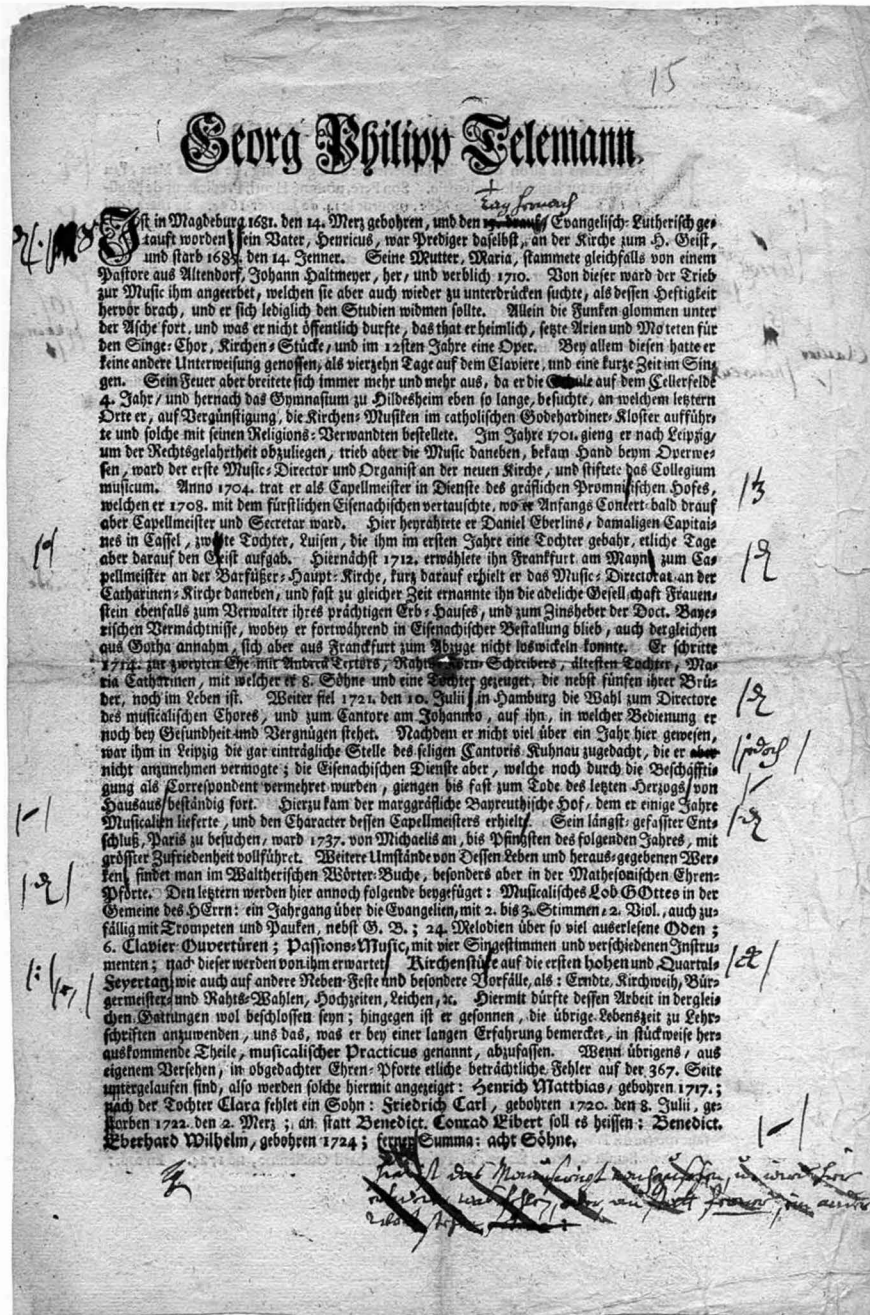 15
Georg Philipp Telemann.
Tag hernach
Ist in Magdeburg 1681. den 14. Merz gebohren, und den Evangelisch-Lutherisch ge-
tauft worden sein Vater, Henricus, war Prediger daselbst, an der Kirche zum H. Geist,
und starb den 14. Jenner. Seine Mutter, Maria, stammete gleichfals von einem
Pastore aus Altendorf, Johann Haltmeyer, her, und verblich 1710. Von dieser ward der Trieb
zur Music ihm angeerbet, welchen sie aber auch wieder zu unterdrücken suchte, als dessen Heftigkeit
hervor brach, und er sich lediglich den Studien widmen sollte. Allein die Funken glommen unter
der Asche fort, und was er nicht öffentlich durfte, das that er heimlich, setzte Arien und Moteten für
den Singe-Chor, Kirchen-Stücke, und im 12ten Jahre eine Oper. Bey allem diesen hatte er
keine andere Unterweisung genossen, als vierzehn Tage auf dem Claviere, und eine kurze Zeit im Sin-
gen. Sein Feuer aber breitete sich immer mehr und mehr aus, da er die Schule auf dem Cellerfelde
4. Jahr/ und hernach das Gymnasium zu Hildesheim eben so lange, besuchte, an welchem letztern
Orte er, auf Vergünstigung, die Kirchen-Musiken im catholischen Godehardiner-Kloster aufführ-
te und solche mit seinen Religions-Verwandten bestellete. Im Jahre 1701. gieng er nach Leipzig/
um der Rechtsgelahrtheit obzuliegen, trieb aber die Music daneben, bekam Hand beym Operwe-
sen, ward der erste Music-Director und Organist an der neuen Kirche, und stiftete das Collegium
musicum. Anno 1704. trat er als Capellmeister in Dienste des gräflichen Promnisischen Hofes,
welchen er 1708. mit dem fürstlichen Eisenachischen vertauschte, wo er Anfangs Concert-bald drauf
aber Capellmeister und Secretar ward. Hier heyrahtete er Daniel Eberlins, damaligen Capitai-
nes in Cassel, zweite Tochter, Luisen, die ihm im ersten Jahre eine Tochter gebahr, etliche Tage
aber darauf den Geist aufgab. Hiernächst 1712. erwählete ihn Franckfurt am Mayn zum Ca-
pellmeister an der Barfüßer-Haupt-Kirche, kurz darauf erhielt er das Music-Directorat an der
Catharinen-Kirche daneben, und fast zu gleicher Zeit ernannte ihn die adeliche Gesellschaft Frauen-
stein ebenfalls zum Verwalter ihres prächtigen Erb-Hauses, und zum Zinsheber der Doct. Baye-
rischen Vermächtnisse, wobey er fortwährend in Eisenachischer Bestallung blieb, auch dergleichen
aus Gotha annahm, sich aber aus Franckfurt zum Abzuge nicht loswickeln konnte. Er schritte
1714. zur zweyten Ehe mit Andreä Textors, Rahts-Korn-Schreibers, ältesten Tochter, Ma-
ria Catharinen, mit welcher er 8. Söhne und eine Tochter gezeuget, die nebst fünfen ihrer Brü-
der, noch im Leben ist. Weiter fiel 1721. den 10. Julii in Hamburg die Wahl zum Directore
des musicalischen Chores, und zum Cantore am Johanneo, auf ihn, in welcher Bedienung er
noch bey Gesundheit und Vergnügen stehet. Nachdem er nicht viel über ein Jahr hier gewesen,
war ihm in Leipzig die gar einträgliche Stelle des seligen Cantoris Kuhnau zugedacht, die er aber
jedoch
nicht anzunehmen vermogte; die Eisenachischen Dienste aber, welche noch durch die Beschäffti-
gung als Correspondent vermehret wurden, giengen bis fast zum Tode des letzten Herzogs von
Hausaus beständig fort. Hierzu kam der marggräfliche Bayreuthische Hof, dem er einige Jahre
Musicalien lieferte, und den Character dessen Capellmeisters erhielt. Sein längst-gefasster Ent-
schluß, Paris zu besuchen, ward 1737. von Michaelis an, bis Pfingsten des folgenden Jahres, mit
grösster Zufriedenheit vollführet. Weitere Umstände von Dessen Leben und heraus-gegebenen Wer-
ken findet man im Waltherischen Wörter-Buche, besonders aber in der Mathesonischen Ehren-
Pforte. Den letztern werden hier annoch folgende beygefüget: Musicalisches Lob GOttes in der
Gemeine des HErrn: ein Jahrgang über die Evangelien, mit 2. bis 3. Stimmen, 2. Viol., auch zu-
fällig mit Trompeten und Pauken, nebst G. B.; 24. Melodien über so viel auserlesene Oden;
6. Clavier Ouvertüren; Passions-Music, mit vier Singestimmen und verschiedenen Instru-
menten; nach dieser werden von ihm erwartet Kirchenstüke auf die ersten hohen und Quartal-
Feyertag wie auch auf andere Neben-Feste und besondere Vorfälle, als: Erndte, Kirchweih, Bür-
germeister- und Rahts-Wahlen, Hochzeiten, Leichen, ꝛc. Hiermit dürfte dessen Arbeit in derglei-
chen Gattungen wol beschlossen seyn; hingegen ist er gesonnen, die übrige Lebenszeit zu Lehr-
schriften anzuwenden, uns das, was er bey einer langen Erfahrung bemercket, in stückweise her-
auskommende Theile, musicalischer Practicus genannt, abzufassen. Wenn übrigens, aus
eigenem Versehen, in obgedachter Ehren-Pforte etliche beträchtliche Fehler auf der 367. Seite
untergelaufen sind, also werden solche hiermit angezeiget: Henrich Matthias, gebohren 1717.;
nach der Tochter Clara fehlet ein Sohn: Friedrich Carl, gebohren 1720. den 8. Julii, ge-
storben 1722. den 2. Merz; an statt Benedict. Conrad Eibert soll es heissen: Benedict.
Eberhard Wilhelm, gebohren 1724; ferner Summa: acht Söhne.